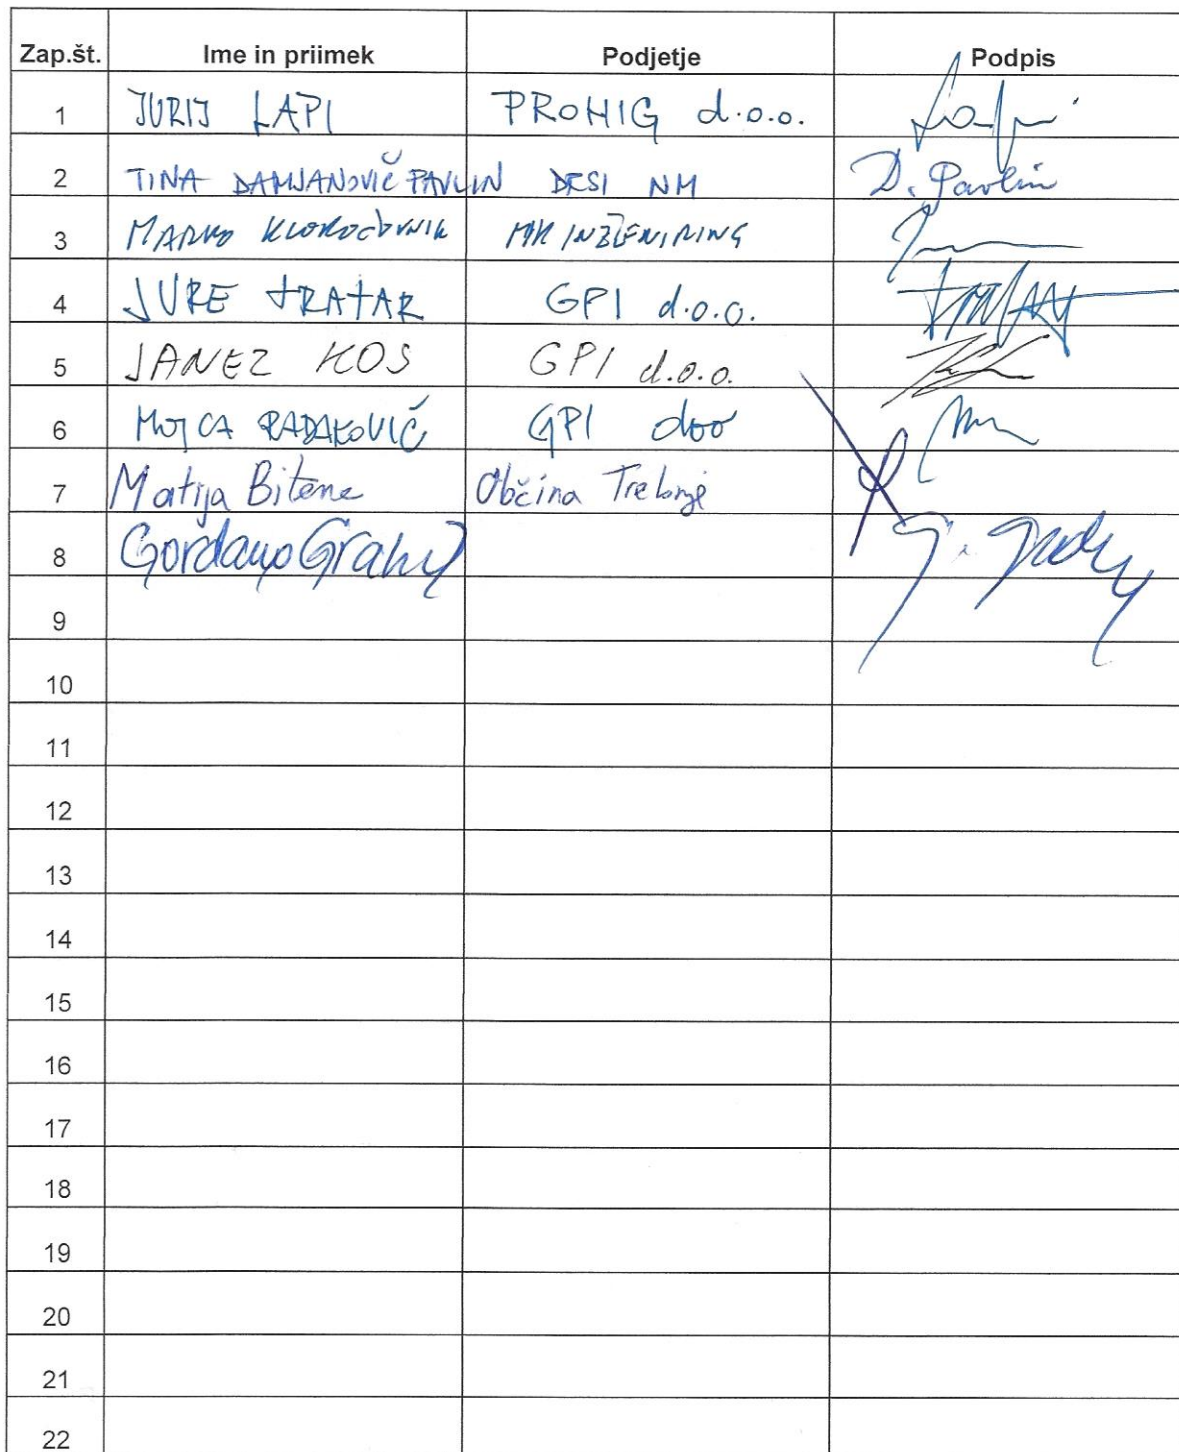 Zap.št. Ime in priimek Podjetje Podpis
1 JURIJ LAPI PROHIG d.o.o.
2 TINA DAMJANOVIČ PAVLIN DRSI NM D. Pavlin
3 MARKO MK INŽENIRING
4 JURE TRATAR GPI d.o.o.
5 JANEZ KOS GPI d.o.o.
6 MOJCA RADAKOVIČ GPI doo
7 Matija Bitenc Občina Trebnje
8 Gordano
9
10
11
12
13
14
15
16
17
18
19
20
21
22